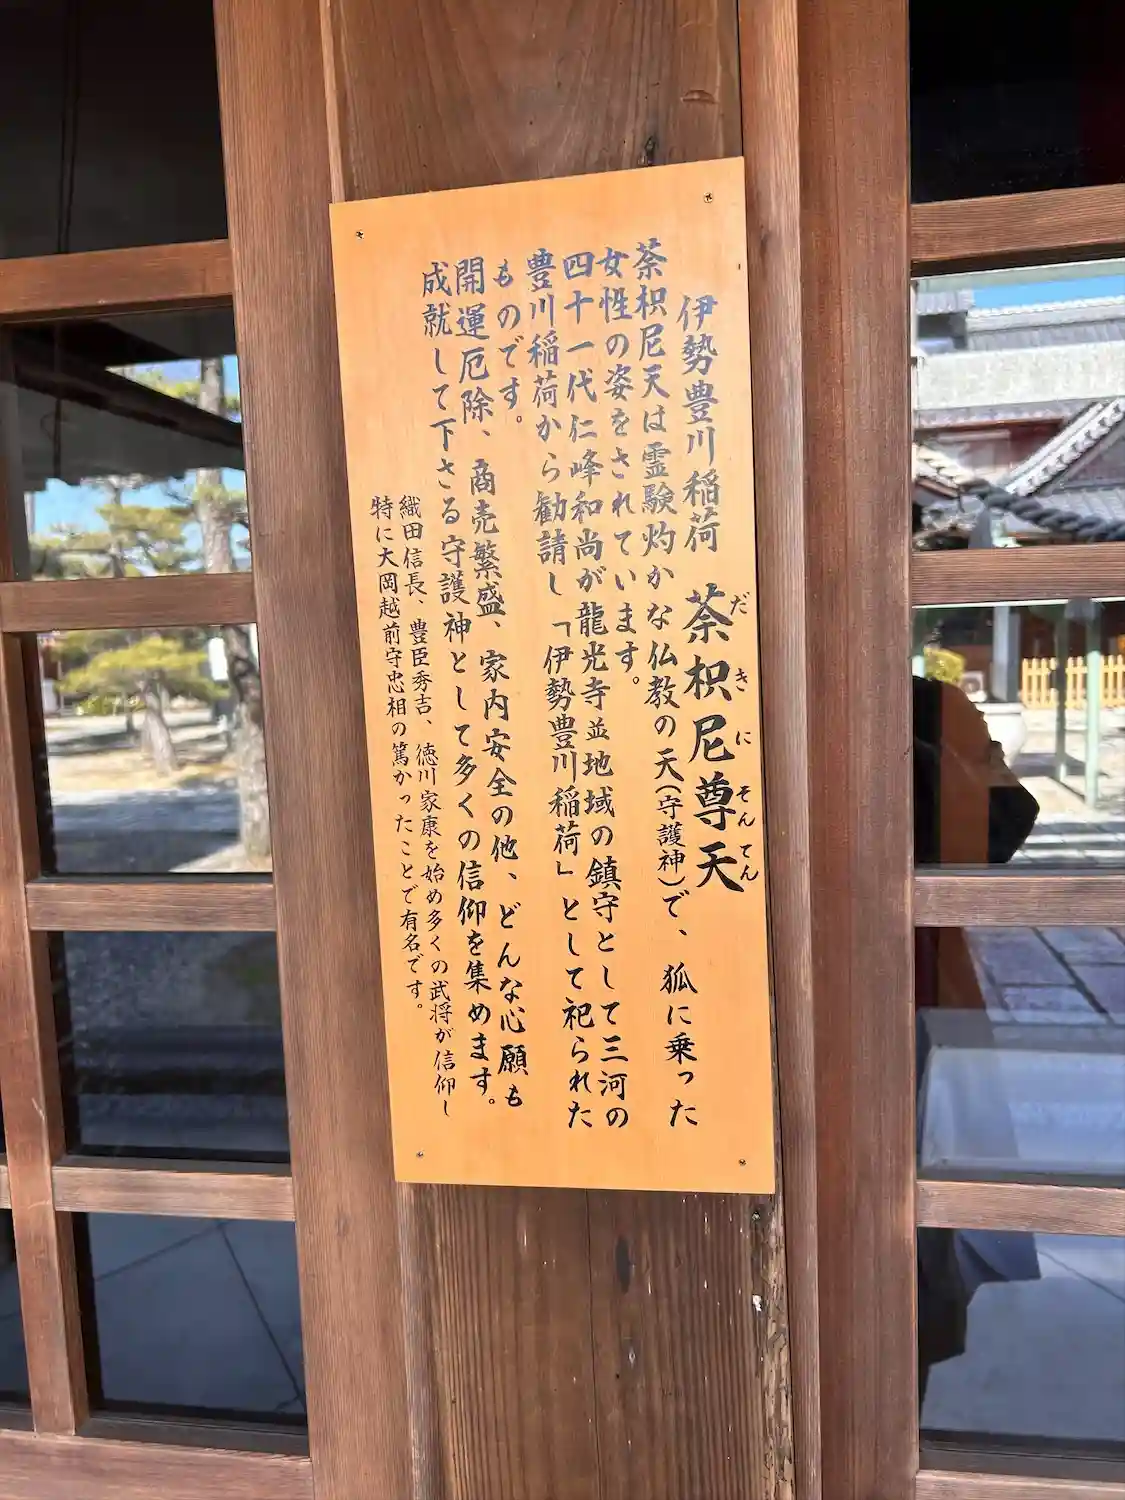 伊勢豊川稲荷 荼枳尼尊天
だ き に そん てん
荼枳尼天は霊験灼かな仏教の天(守護神)で、狐に乗った
女性の姿をされています。
四十一代仁峰和尚が龍光寺並地域の鎮守として三河の
豊川稲荷から勧請し「伊勢豊川稲荷」として祀られた
ものです。
開運厄除、商売繁盛、家内安全の他、どんな心願も
成就して下さる守護神として多くの信仰を集めます。
織田信長、豊臣秀吉、徳川家康を始め多くの武将が信仰し
特に大岡越前守忠相の篤かったことで有名です。